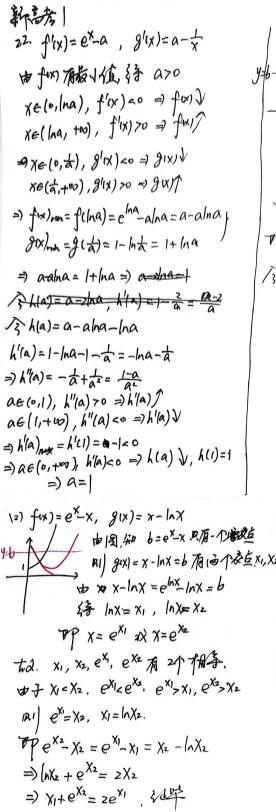 新高考1
22. f'(x)=e^x-a , g'(x)=a-1/x
由f(x)有最小值,得 a>0
x∈(0,lna), f'(x)<0 ⇒ f(x)↓
x∈(lna,+∞), f'(x)>0 ⇒ f(x)↑
x∈(0,1/a), g'(x)<0 ⇒ g(x)↓
x∈(1/a,+∞), g'(x)>0 ⇒ g(x)↑
⇒ f(x)min=f(lna)=e^lna-alna=a-alna
g(x)min=g(1/a)=1-ln1/a=1+lna
⇒ a-alna=1+lna ⇒
令 h(a)=a-alna-lna
h'(a)=1-lna-1-1/a=-lna-1/a
⇒h''(a)=-1/a+1/a²=(1-a)/a²
a∈(0,1), h''(a)>0 ⇒h'(a)↑
a∈(1,+∞), h''(a)<0 ⇒h'(a)↓
⇒h'(a)max=h'(1)=-1<0
⇒a∈(0,+∞), h'(a)<0 ⇒ h(a)↓, h(1)=1
⇒ a=1
(2) f(x)=e^x-x, g(x)=x-lnx
由图知 b=e^x-x 只有一个
y=b
1
则 g(x)=x-lnx=b有两个交点x₁,x₂
由 x-lnx=e^lnx-lnx=b
得 lnx=x₁, lnx=x₂
即 x=e^x₁ 或 x=e^x₂
x₁, x₂, e^x₁, e^x₂ 有2个相等.
由于 x₁<x₂. e^x₁<e^x₂. e^x₁>x₁, e^x₂>x₂
则 e^x₁=x₂, x₁=lnx₂.
即 e^x₂-x₂=e^x₁-x₁=x₂-lnx₂
⇒lnx₂+e^x₂=2x₂
⇒ x₁+e^x₂=2e^x₁ , 证毕